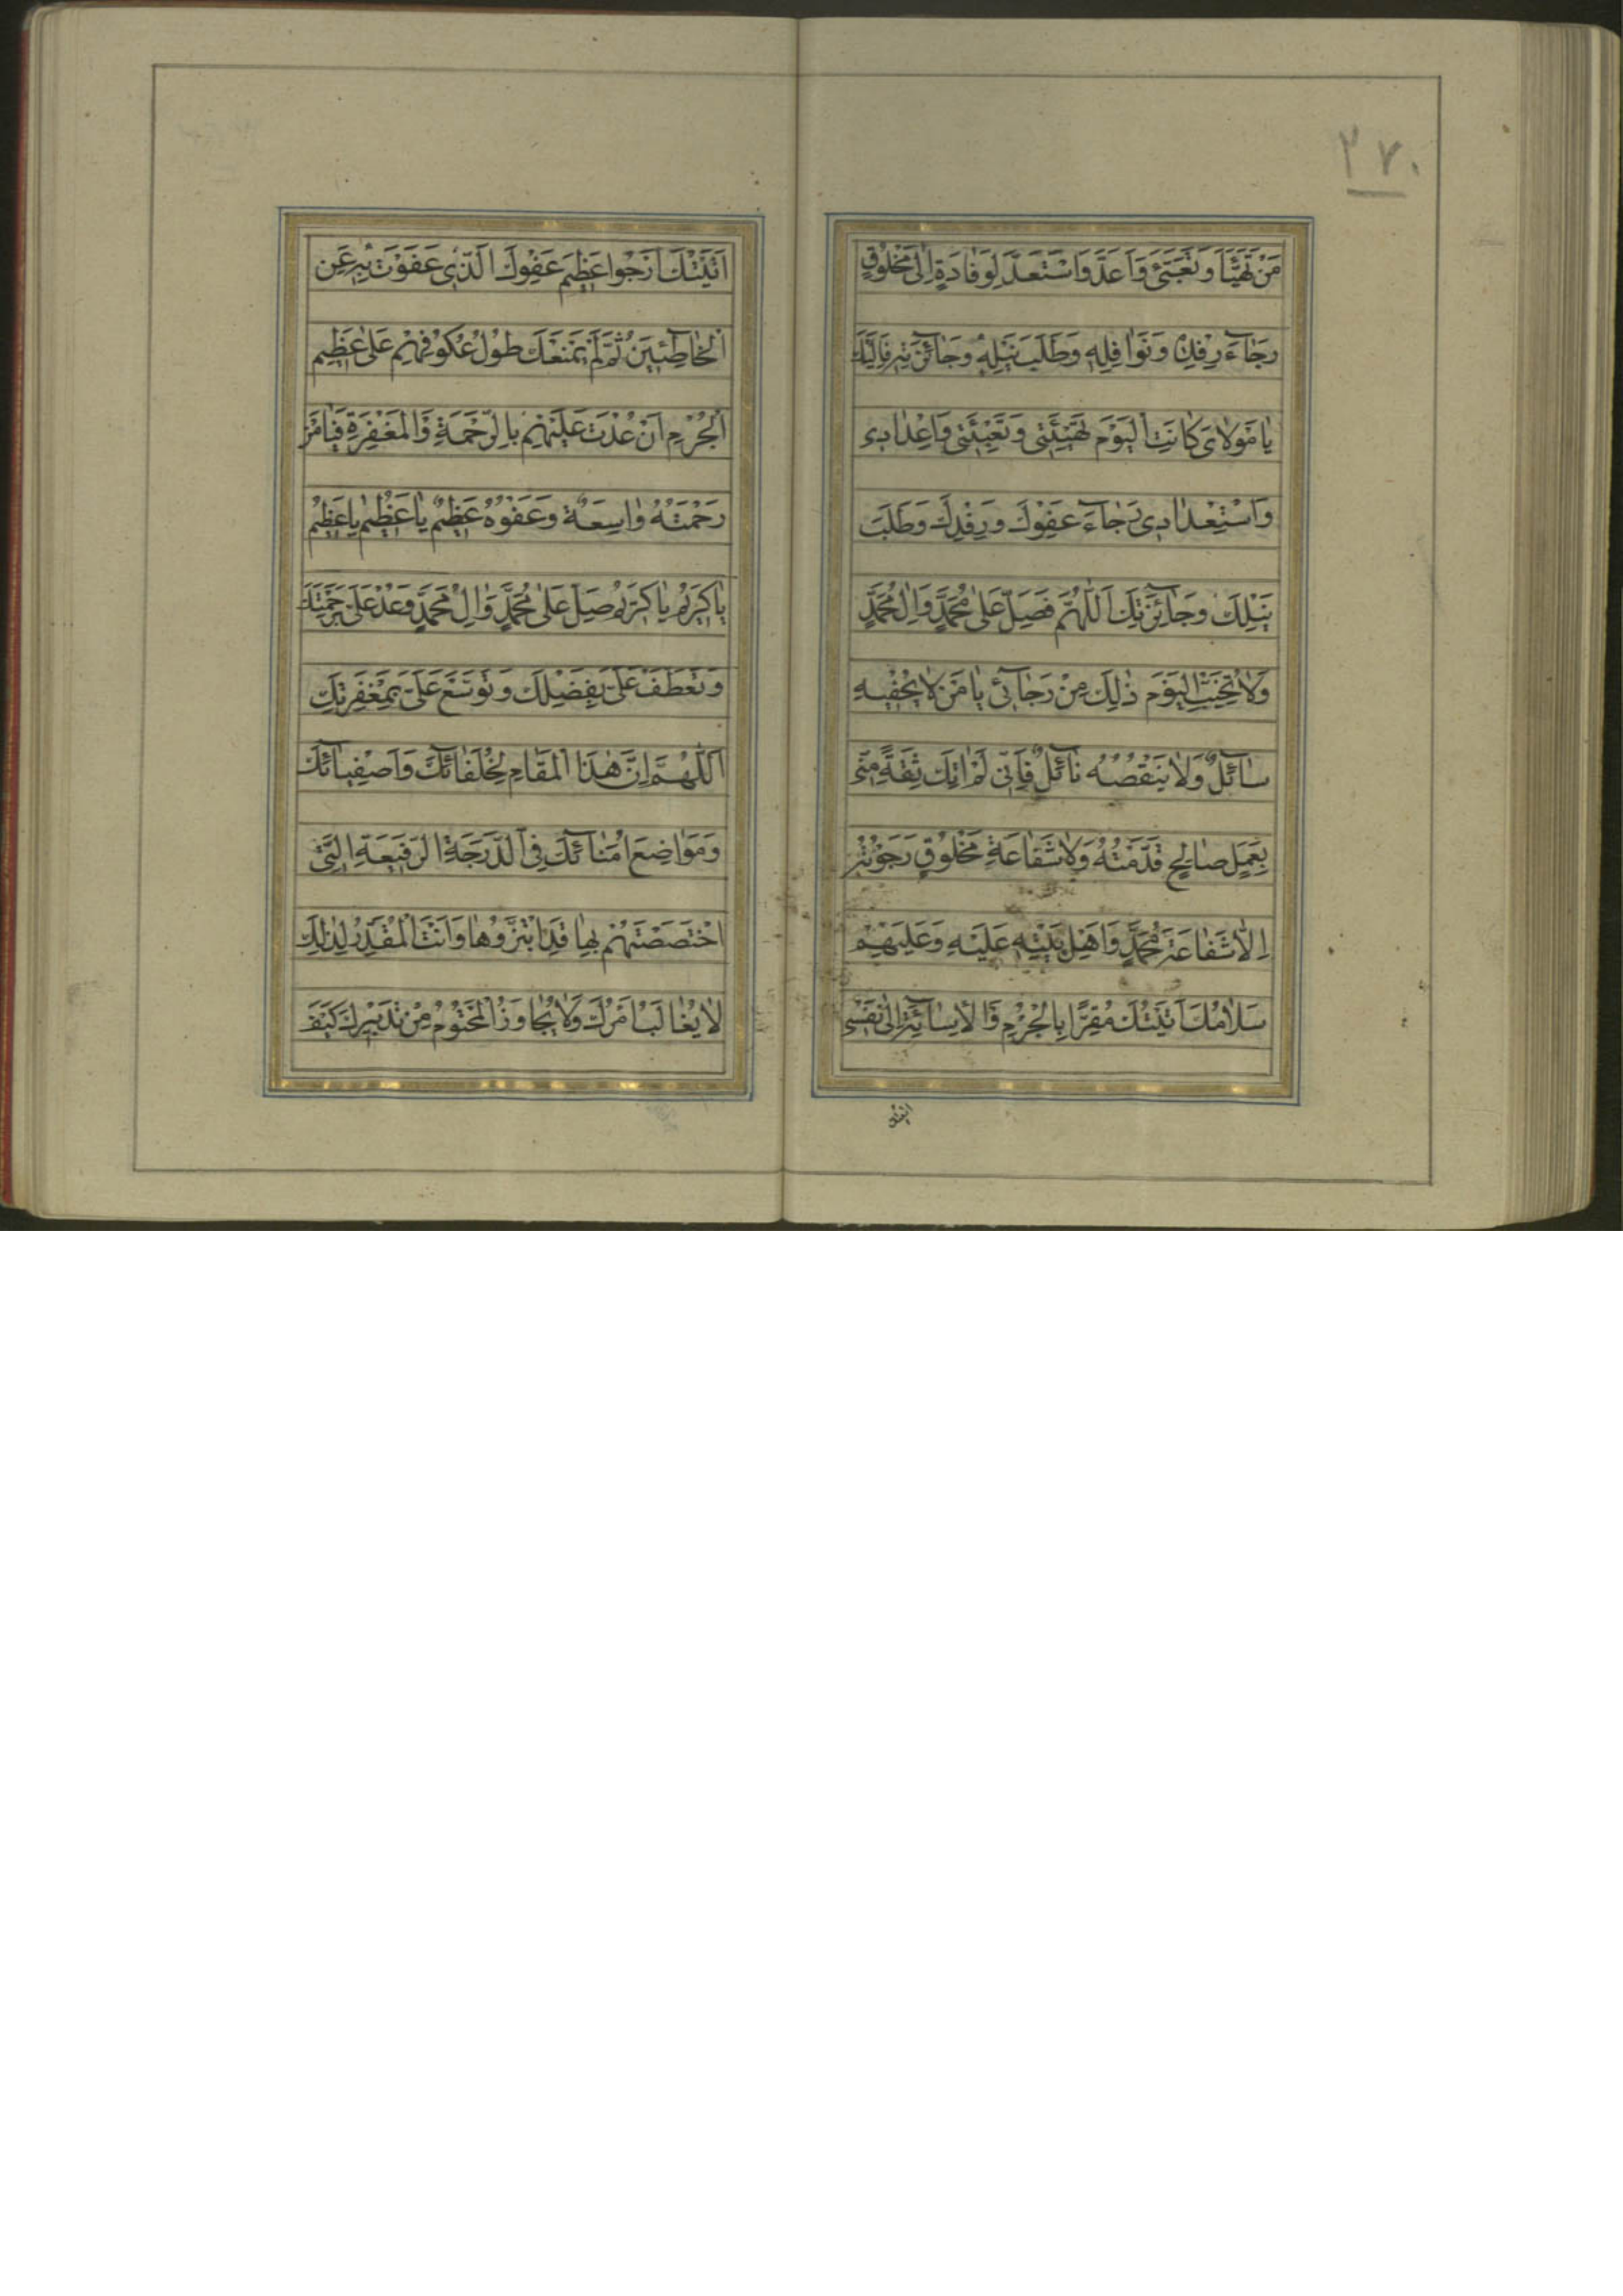 ٢٧٠
مَنْ تَهَيَّأَ وَتَعَبَّئَ وَاَعَدَّ وَاسْتَعَدَّ لِوِفَادَةٍ اِلَىٰ مَخْلُوقٍ
رَجَاءَ رِفْدِهٖ وَنَوَافِلِهٖ وَطَلَبَ نَيْلِهٖ وَجَائِزَتِهٖ فَاِلَيْكَ
يَا مَوْلَايَ كَانَتِ الْيَوْمَ تَهْيِئَتِى وَتَعْبِئَتِى وَاِعْدَادِى
وَاسْتِعْدَادِى رَجَاءَ عَفْوِكَ وَرِفْدِكَ وَطَلَبَ
نَيْلِكَ وَجَائِزَتِكَ اَللّٰهُمَّ فَصَلِّ عَلَىٰ مُحَمَّدٍ وَاٰلِ مُحَمَّدٍ
وَلَا تُخَيِّبِ الْيَوْمَ ذٰلِكَ مِنْ رَجَائِى يَا مَنْ لَا يُحْفِيهِ
سَائِلٌ وَلَا يَنْقُصُهُ نَائِلٌ فَاِنِّى لَمْ اٰتِكَ ثِقَةً مِنِّى
بِعَمَلٍ صَالِحٍ قَدَّمْتُهُ وَلَا شَفَاعَةِ مَخْلُوقٍ رَجَوْتُهُ
اِلَّا شَفَاعَةَ مُحَمَّدٍ وَاَهْلِ بَيْتِهٖ عَلَيْهِ وَعَلَيْهِمْ
سَلَامُكَ اَتَيْتُكَ مُقِرًّا بِالْجُرْمِ وَالْاِسَائَةِ اِلَىٰ نَفْسِى
اتيتك
اَتَيْتُكَ اَرْجُوا عَظِيمَ عَفْوِكَ الَّذِى عَفَوْتَ بِهٖ عَنِ
الْخَاطِئِينَ ثُمَّ لَمْ يَمْنَعْكَ طُولُ عُكُوفِهِمْ عَلَىٰ عَظِيمِ
الْجُرْمِ اَنْ عُدْتَ عَلَيْهِمْ بِالرَّحْمَةِ وَالْمَغْفِرَةِ فَيَا مَنْ
رَحْمَتُهُ وَاسِعَةٌ وَعَفْوُهُ عَظِيمٌ يَا عَظِيمُ يَا عَظِيمُ
يَا كَرِيمُ يَا كَرِيمُ صَلِّ عَلَىٰ مُحَمَّدٍ وَاٰلِ مُحَمَّدٍ وَعُدْ عَلَىَّ بِرَحْمَتِكَ
وَتَعَطَّفْ عَلَىَّ بِفَضْلِكَ وَتَوَسَّعْ عَلَىَّ بِمَغْفِرَتِكَ
اَللّٰهُمَّ اِنَّ هٰذَا الْمَقَامِ لِخُلَفَائِكَ وَاَصْفِيَائِكَ
وَمَوَاضِعَ اُمَنَائِكَ فِى الدَّرَجَةِ الرَّفِيعَةِ الَّتِى
اخْتَصَصْتَهُمْ بِهَا قَدِ ابْتَزُّوهَا وَاَنْتَ الْمُقَدِّرُ لِذٰلِكَ
لَا يُغَالَبُ اَمْرُكَ وَلَا يُجَاوَزُ الْمَحْتُومُ مِنْ تَدْبِيرِكَ كَيْفَ